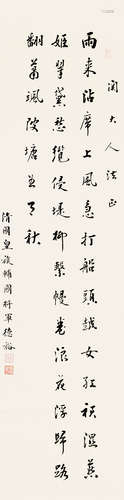 大人法正
雨來沾席上風急打船頭越女紅裙濕燕
姬翠黛愁纜侵堤柳繫幔卷浪花浮歸路
翻蕭颯陂塘五月秋
清國皇族輔國將軍德裕